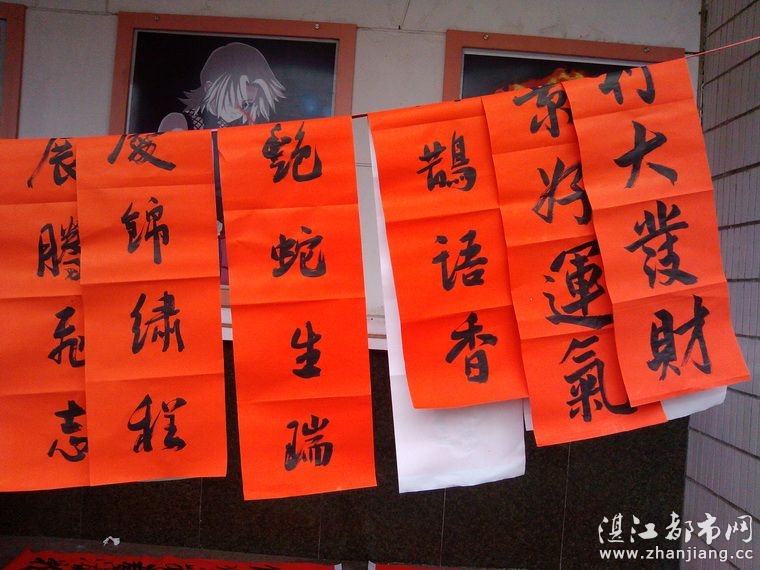 大發財
好運氣
鵲語香
蛇生瑞
錦繡程
展騰飛志
湛江都市网
www.zhanjiang.cc